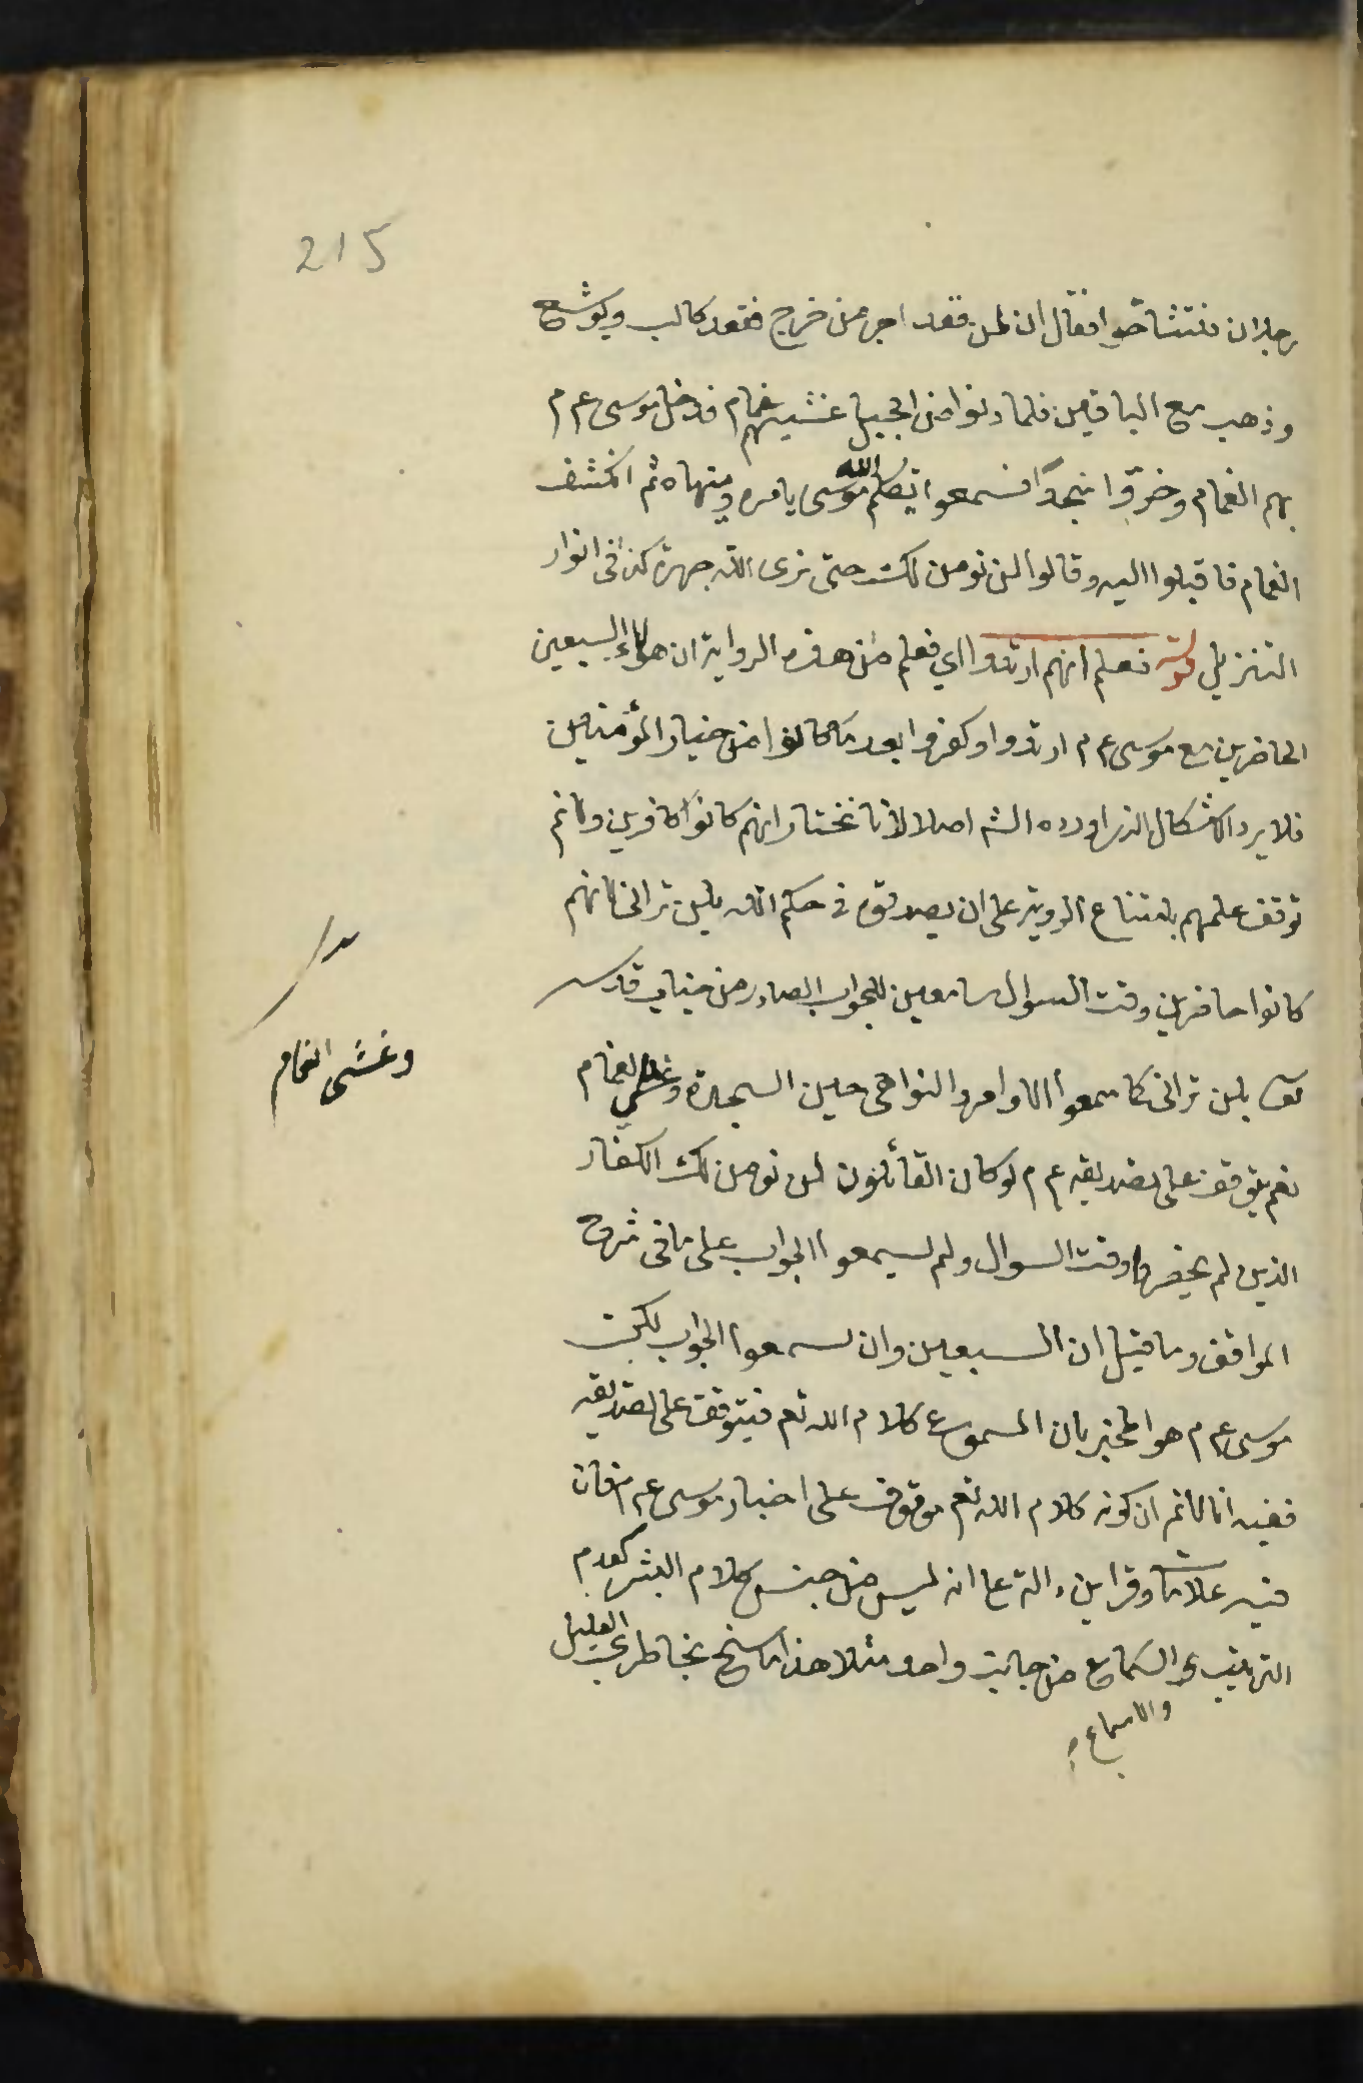 215
رجلان فتشاحوا فقال ان لمن قعد اجر من خرج فقعد كالب ويوشع
وذهب مع الباقين فلما دنوا من الجبل غشيهم غمام فدخل موسى ع م
بهم الغمام وخروا سجدا فسمعوا تكلم الله موسى يامره وينهاه ثم انكشف
الغمام فاقبلوا اليه وقالوا لن نومن لك حتى نرى الله جهرة كذا فى انوار
التنزيل قوله فعلم انهم ارتدوا اي فعلم من هذه الرواية ان هؤلاء السبعين
الحاضرين مع موسى ع م ارتدوا وكفروا بعد ما كانوا من خيار المؤمنين
فلا يرد الاشكال الذى اورده الشه اصلا لانا نختار انهم كانوا كافرين ولانم
توقف علمهم بامتناع الروية على ان يصدقوه فى حكم الله بلن ترانى لانهم
كانوا حاضرين وقت السوال سامعين للجواب الصادر من جناب قدسه
تعـ بلن ترانى كما سمعوا الاوامر والنواهى حين السجدة وغشى الغمام
وغشى الغمام
نعم يتوقف على تصديقه ع م لو كان القائلون لن نومن لك الكفار
الذين لم يحضروا وقت السوال ولم يسمعوا الجواب على ما فى شرح
المواقف وما قيل ان السبعين وان سمعوا الجواب لكن
موسى ع م هو المخبر بان المسموع كلام الله تعم فيتوقف على تصديقه
ففيه انا لانم ان كونه كلام الله تعم موقوف على اخبار موسى ع م فان
فيه علامات وقراين دالة عا انه ليس من جنس كلام البشر كعدم
الترتيب والسماع من جانب واحد مثلا هذا ما سنح بخاطرى العليل
والاسماع